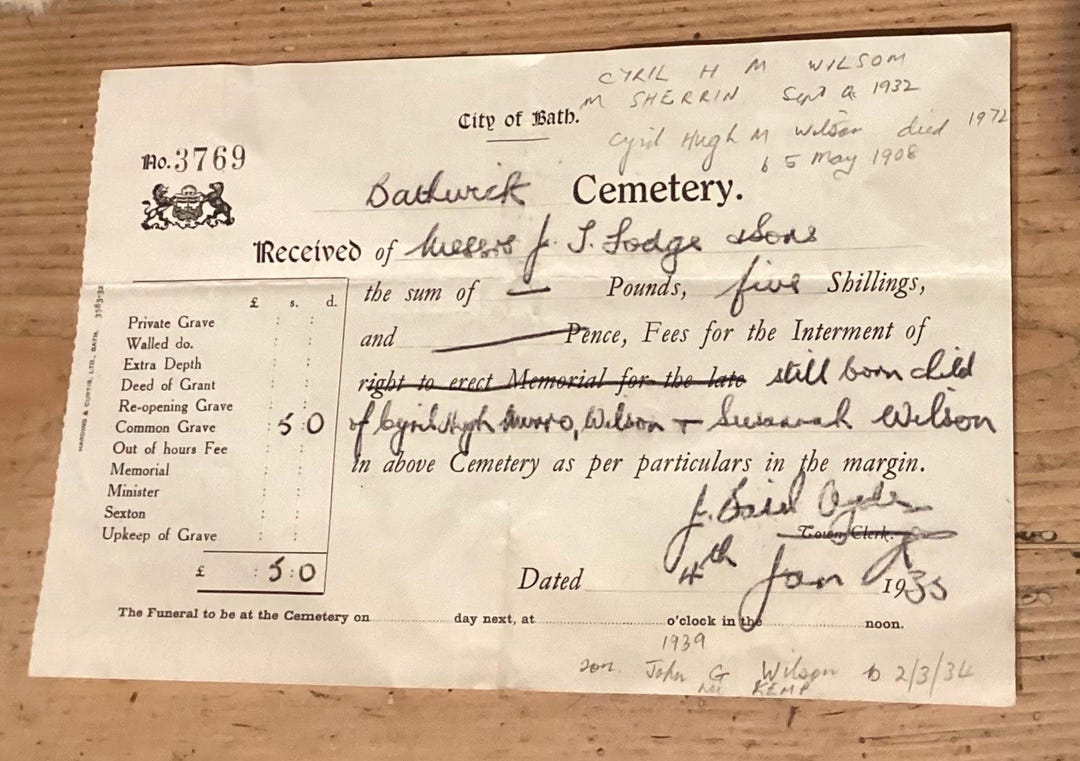 CYRIL H M WILSOM
M SHERRIN Sept Q 1932
Cyril Hugh M Wilson died 1972
b 5 May 1908
City of Bath.
No. 3769
Bathwick Cemetery.
Received of Messrs J. T. Lodge & Sons
the sum of — Pounds, five Shillings,
and — Pence, Fees for the Interment of
right to erect Memorial for the late still born child
of Cyril Hugh Munro, Wilson + Susannah Wilson
in above Cemetery as per particulars in the margin.
£ s. d.
Private Grave
Walled do.
Extra Depth
Deed of Grant
Re-opening Grave
Common Grave : 5 : 0
Out of hours Fee
Memorial
Minister
Sexton
Upkeep of Grave
£ : 5 : 0
HARDING & CURTIS, LTD., BATH. 3583-32
J.
Town Clerk.
Dated 4th Jan 1935
The Funeral to be at the Cemetery on day next, at o'clock in the noon.
1939
son. John G Wilson b 2/3/34
KEMP